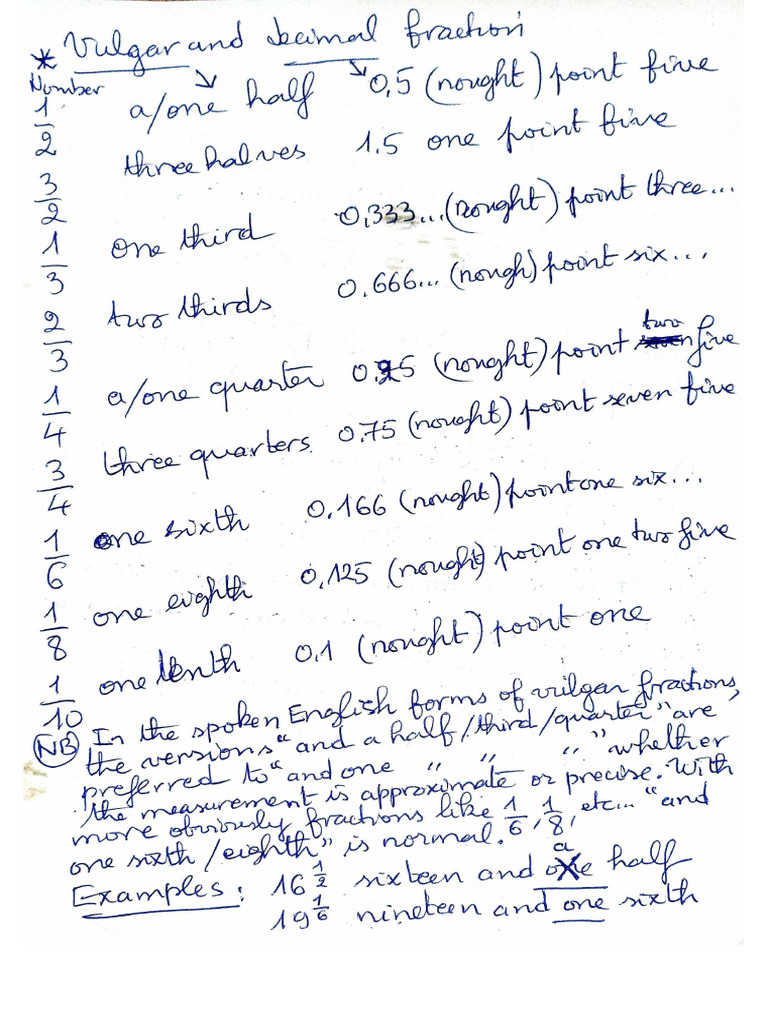 * Vulgar and decimal fraction
Number
1/2 a/one half 0,5 (nought) point five
3/2 three halves 1.5 one point five
1/3 one third 0,333... (nought) point three...
2/3 two thirds 0.666... (nough) point six...
1/4 a/one quarter 0.25 (nought) point two five
3/4 three quarters 0.75 (nought) point seven five
1/6 one sixth 0.166 (nought) point one six...
1/8 one eighth 0,125 (nought) point one two five
1/10 one tenth 0.1 (nought) point one
NB In the spoken English forms of vulgar fractions,
the versions "and a half/third/quarter" are
preferred to "and one " " " " whether
the measurement is approximate or precise. With
more obviously fractions like 1/6, 1/8, etc... "and
one sixth/eighth" is normal.
Examples: 16 1/2 sixteen and a half
19 1/6 nineteen and one sixth